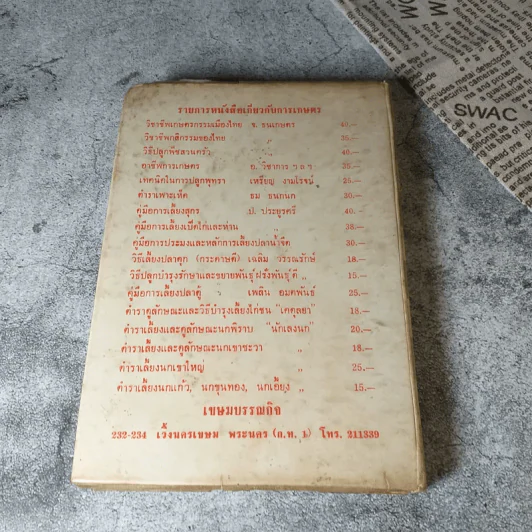 รายการหนังสือเกี่ยวกับการเกษตร
วิชาชีพเกษตรกรรมเมืองไทย ช. ธนเกษตร 40.—
วิชาชีพกสิกรรมของไทย ,, 35.—
วิธีปลูกพืชสวนครัว ,, 40.—
อาชีพการเกษตร อ. วิชาการ ฯลฯ 35.—
เทคนิคในการปลูกพุทรา เหรียญ งามโรจน์ 25.—
ตำราเพาะเห็ด ธม ธนกนก 30.—
คู่มือการเลี้ยงสุกร ป. ประทูรศรี 40.—
คู่มือการเลี้ยงเป็ดไก่และห่าน ,, 38.—
คู่มือการประมงและหลักการเลี้ยงปลาน้ำจืด 30.—
วิธีเลี้ยงปลาดุก (กระดาษดี) เฉลิม วรรณรักษ์ 18.—
วิธีปลูกบำรุงรักษาและขยายพันธุ์ฝรั่งพันธุ์ดี ,, 15.—
คู่มือการเลี้ยงปลาตู้ เพลิน อมตพันธ์ 25.—
ตำราดูลักษณะและวิธีบำรุงเลี้ยงไก่ชน "เคตุลยา" 18.—
ตำราเลี้ยงและดูลักษณะนกพิราบ "นักเลงนก" 20.—
ตำราเลี้ยงและดูลักษณะนกเขาชะวา ,, 18.—
ตำราเลี้ยงนกเขาใหญ่ ,, 25.—
ตำราเลี้ยงนกแก้ว, นกขุนทอง, นกเอี้ยง ,, 15.—
เขษมบรรณกิจ
232-234 เวิ้งนครเขษม พระนคร (ก.ท. 1) โทร. 211339
SWAC